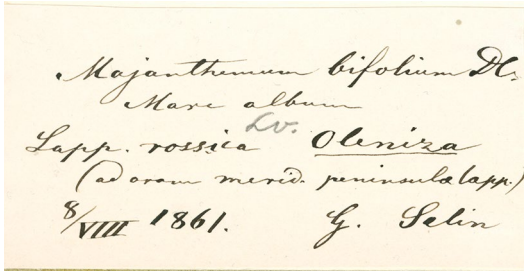 Majanthemum bifolium DC.
Mare album
Lv.
Lapp. rossica Oleniza
(ad oram merid. peninsulæ lapp.)
8/VIII 1861. G. Selin